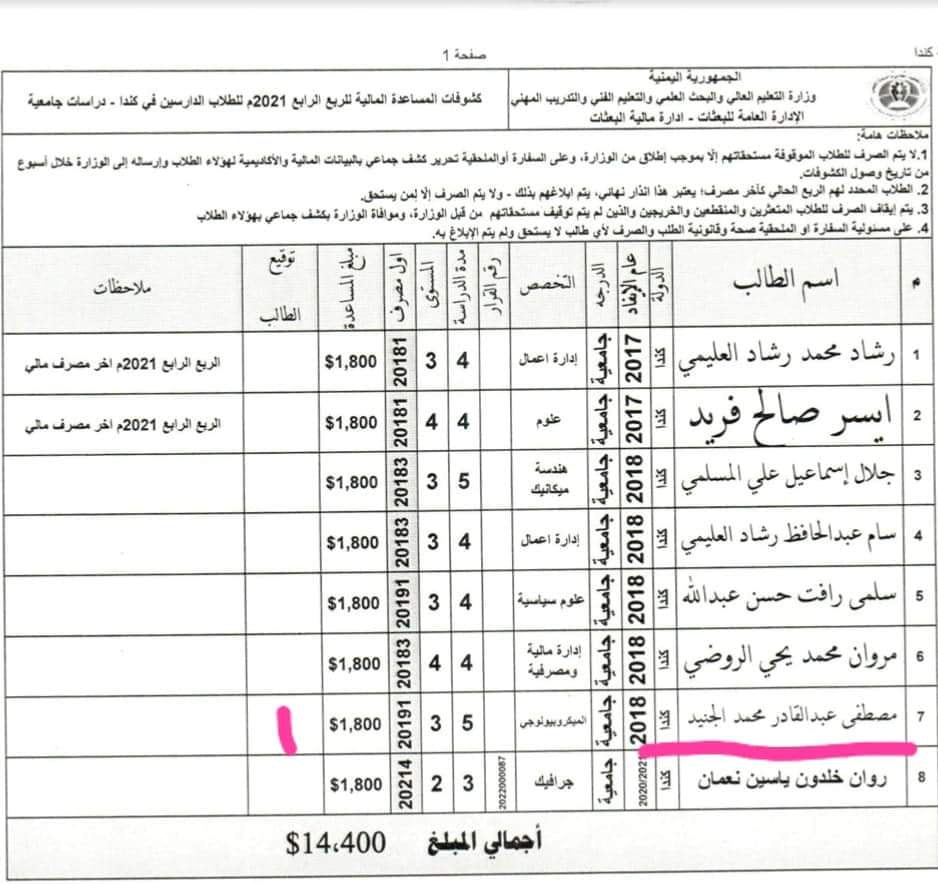 كندا
صفحة 1
الجمهورية اليمنية
وزارة التعليم العالي والبحث العلمي والتعليم الفني والتدريب المهني
الإدارة العامة للبعثات - ادارة مالية البعثات
كشوفات المساعدة المالية للربع الرابع 2021م للطلاب الدارسين في كندا - دراسات جامعية
ملاحظات هامة:
1. لا يتم الصرف للطلاب الموقوفة مستحقاتهم إلّا بموجب إطلاق من الوزارة، وعلى السفارة أوالملحقية تحرير كشف جماعي بالبيانات المالية والأكاديمية لهؤلاء الطلاب وإرساله إلى الوزارة خلال أسبوع
من تاريخ وصول الكشوفات.
2. الطلاب المحدد لهم الربع الحالي كآخر مصرف؛ يعتبر هذا انذار نهائي، يتم ابلاغهم بذلك - ولا يتم الصرف إلّا لمن يستحق.
3. يتم إيقاف الصرف للطلاب المتعثرين والمنقطعين والخريجين والذين لم يتم توقيف مستحقاتهم من قبل الوزارة، وموافاة الوزارة بكشف جماعي بهؤلاء الطلاب
4. على مسئولية السفارة او الملحقية صحة وقانونية الطلب والصرف لأي طالب لا يستحق ولم يتم الإبلاغ به.
م اسم الطالب الدولة عام الإيفاد الدرجه التخصص رقم القرار مدة الدراسة المستوى اول مصرف مبلغ المساعدة توقيع الطالب ملاحظات
1 رشاد محمد رشاد العليمي كندا 2017 جامعية إدارة اعمال 4 3 20181 $1,800 الربع الرابع 2021م اخر مصرف مالي
2 ايسر صالح فريد كندا 2017 جامعية علوم 4 4 20181 $1,800 الربع الرابع 2021م اخر مصرف مالي
3 جلال إسماعيل علي المسلمي كندا 2018 جامعية هندسة ميكانيك 5 3 20183 $1,800
4 سام عبدالحافظ رشاد العليمي كندا 2018 جامعية إدارة اعمال 4 3 20183 $1,800
5 سلمى رافت حسن عبدالله كندا 2018 جامعية علوم سياسية 4 3 20191 $1,800
6 مروان محمد يحي الروضي كندا 2018 جامعية إدارة مالية ومصرفية 4 4 20183 $1,800
7 مصطفى عبدالقادر محمد الجنيد كندا 2018 جامعية الميكروبيولوجي 5 3 20191 $1,800
8 روان خلدون ياسين نعمان كندا 2020/2021 جامعية جرافيك 2022000087 3 2 20214 $1,800
أجمالي المبلغ $14،400